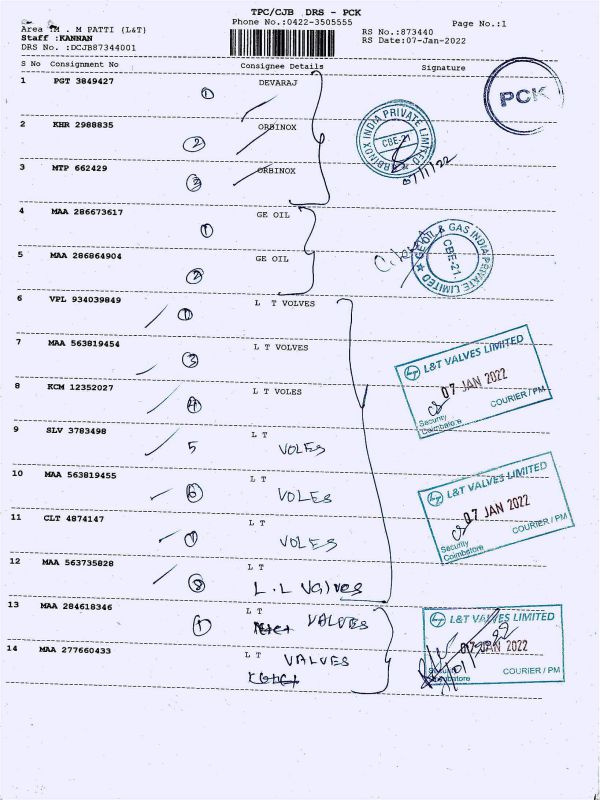 TPC/CJB DRS - PCK
Area :M . M PATTI (L&T) Phone No.:0422-3505555 Page No.:1
Staff :KANNAN RS No.:873440
DRS No. :DCJB87344001 RS Date:07-Jan-2022
S No Consignment No Consignee Details Signature
1 PGT 3849427 DEVARAJ
1
PCK
2 KHR 2988835 ORBINOX
2
ORBINOX INDIA PRIVATE LIMITED
CBE-21
3 MTP 662429 ORBINOX
3
07/1/22
4 MAA 286673617 GE OIL
1
GE OIL & GAS INDIA PRIVATE LIMITED
CBE-21.
5 MAA 286864904 GE OIL
2
6 VPL 934039849 L T VOLVES
1
7 MAA 563819454 L T VOLVES
3
L&T VALVES LIMITED
07 JAN 2022
COURIER / PM
Security
Coimbatore
8 KCM 12352027 L T VOLES
4
9 SLV 3783498 L T
5 VOLES
10 MAA 563819455 L T
6 VOLES
L&T VALVES LIMITED
07 JAN 2022
COURIER / PM
Security
Coimbatore
11 CLT 4874147 L T
VOLES
12 MAA 563735828 L T
8 L.L Valves
13 MAA 284618346 L T
1 VALVES
L&T VALVES LIMITED
07 JAN 2022
COURIER / PM
Security
Coimbatore
14 MAA 277660433 L T VALVES